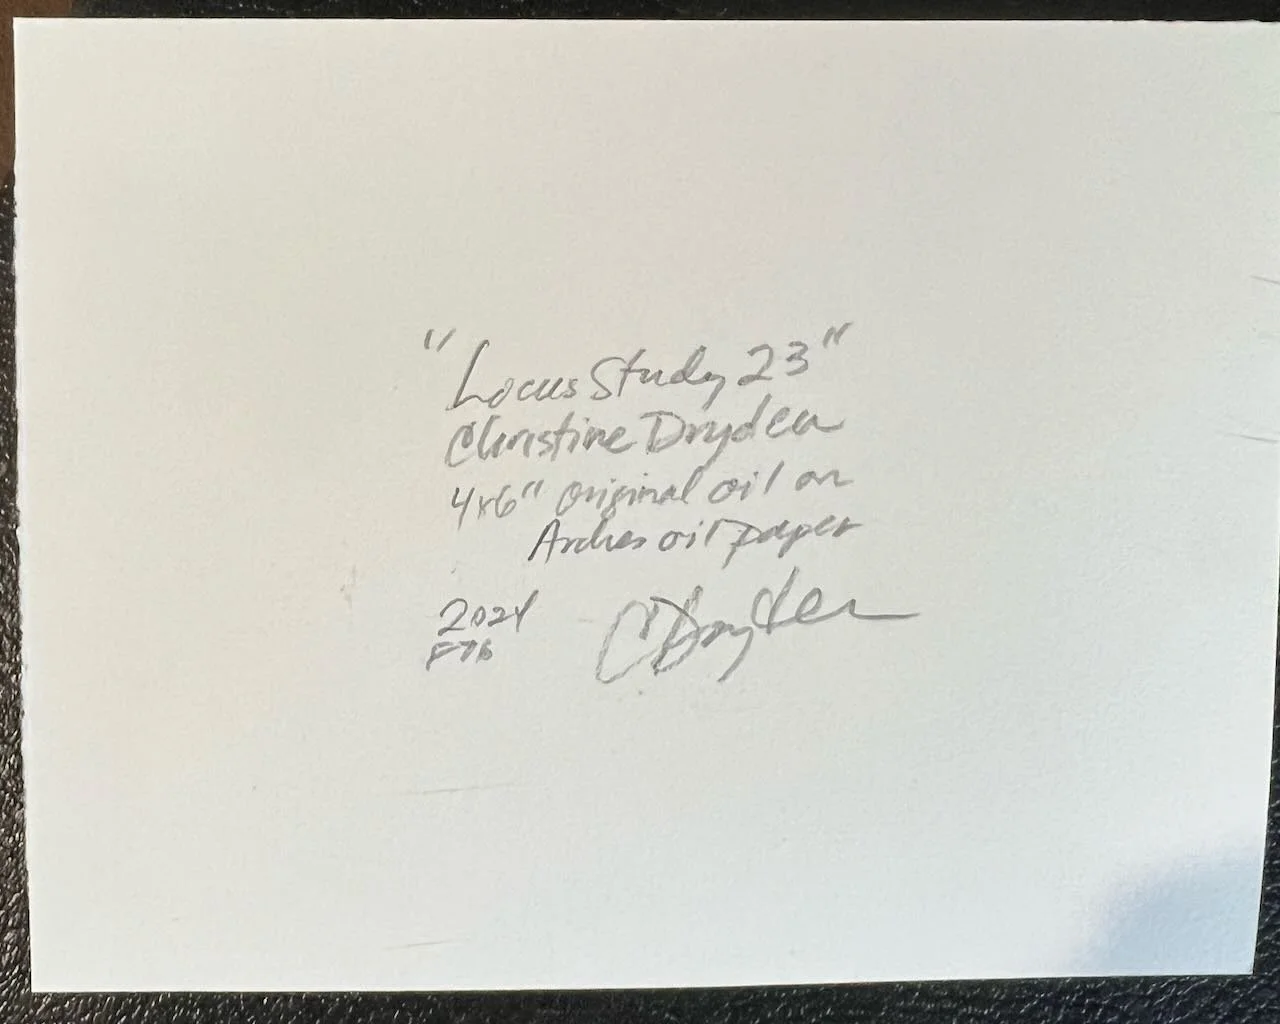 "Locus Study 23"
Christine Dryden
4x6" original oil on
Arches oil paper
2024
CDryden